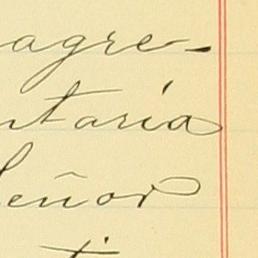 agre-
ntaria
Señor